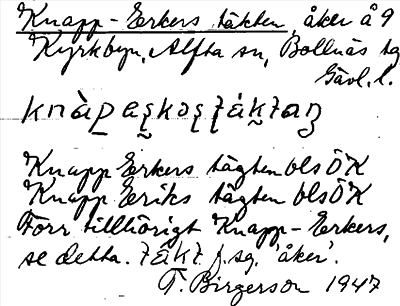 Knapp-Erkers täkten, åker å 9
Kyrkbyn, Alfta sn, Bollnäs tg
Gävl. l.
Knapp Erkers tägten bls ÖK
Knapp Eriks tägten bls ÖK
Förr tillhörigt Knapp-Erkers,
se detta. täkt f. sg. 'åker'.
T. Birgerson 1947